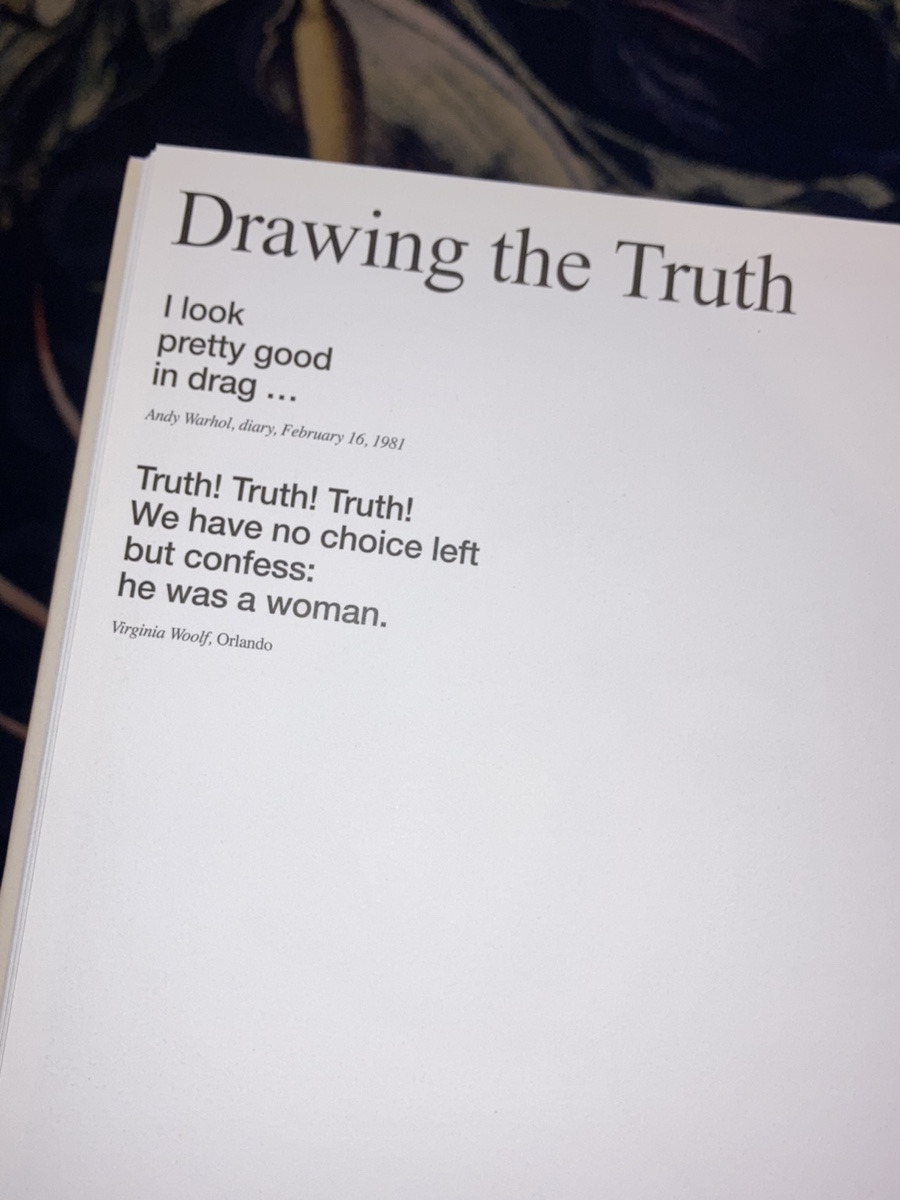 Drawing the Truth
I look
pretty good
in drag ...
Andy Warhol, diary, February 16, 1981
Truth! Truth! Truth!
We have no choice left
but confess:
he was a woman.
Virginia Woolf, Orlando